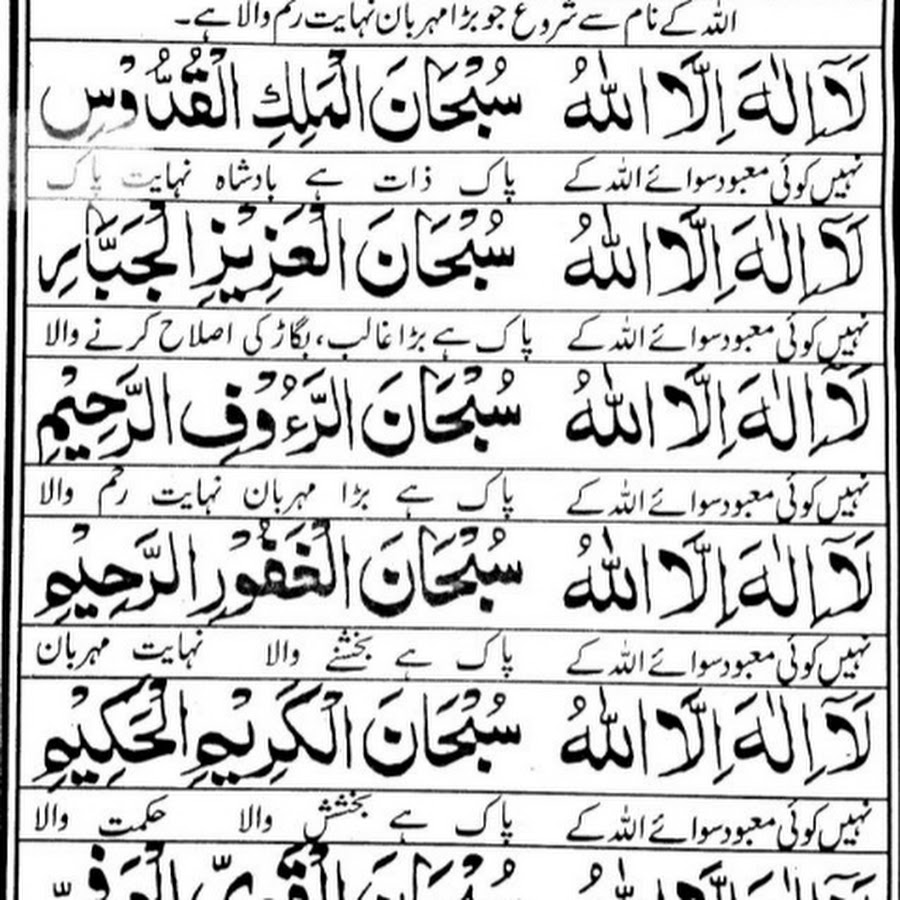 اللہ کے نام سے شروع جو بڑا مہربان نہایت رحم والا ہے۔
لَآ اِلٰهَ اِلَّا اللّٰهُ سُبْحَانَ الْمَلِكِ الْقُدُّوْسِ
نہیں کوئی معبود سوائے اللہ کے پاک ذات ہے بادشاہ نہایت پاک
لَآ اِلٰهَ اِلَّا اللّٰهُ سُبْحَانَ الْعَزِيْزِ الْجَبَّارِ
نہیں کوئی معبود سوائے اللہ کے پاک ہے بڑا غالب، بگاڑ کی اصلاح کرنے والا
لَآ اِلٰهَ اِلَّا اللّٰهُ سُبْحَانَ الرَّءُوْفِ الرَّحِيْمِ
نہیں کوئی معبود سوائے اللہ کے پاک ہے بڑا مہربان نہایت رحم والا
لَآ اِلٰهَ اِلَّا اللّٰهُ سُبْحَانَ الْغَفُوْرِ الرَّحِيْمِ
نہیں کوئی معبود سوائے اللہ کے پاک ہے بخشنے والا نہایت مہربان
لَآ اِلٰهَ اِلَّا اللّٰهُ سُبْحَانَ الْكَرِيْمِ الْحَكِيْمِ
نہیں کوئی معبود سوائے اللہ کے پاک ہے بخشش والا حکمت والا